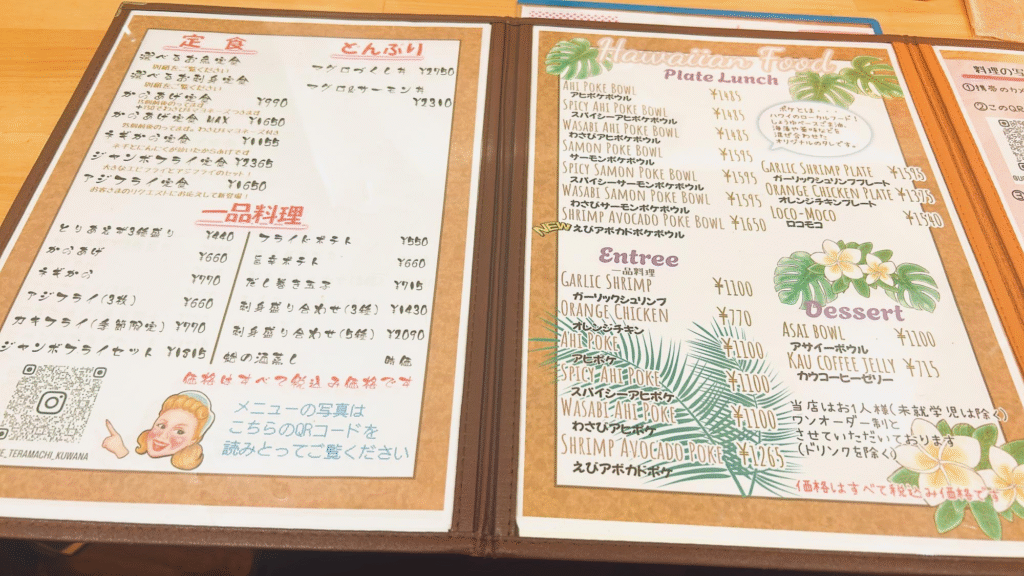 定食
選べるお魚定食
別紙をご覧ください
選べるお刺身定食
別紙をご覧ください
からあげ定食 ¥990
からあげ定食 MAX ¥1650
ネギから定食 ¥1155
ジャンボフライ定食 ¥2365
大きなエビフライとアジフライのセット!
アジフライ定食 ¥1650
どんぶり
マグロづくし丼 ¥2750
マグロ&サーモン丼
¥2310
一品料理
とりあえず3種盛り ¥440
からあげ ¥660
ネギから ¥770
アジフライ(3枚) ¥660
カキフライ(季節限定) ¥770
ジャンボフライセット ¥1815
フライドポテト ¥550
¥660
だし巻き玉子 ¥715
刺身盛り合わせ(3種) ¥1430
刺身盛り合わせ(5種) ¥2090
蛤の酒蒸し 時価
価格はすべて税込み価格です
メニューの写真は
こちらのQRコードを
読みとってご覧ください
E_TERAMACHI_KUWANA
Hawaiian Food
Plate Lunch
Ahi Poke Bowl ¥1485
アヒポケボウル
Spicy Ahi Poke Bowl ¥1485
スパイシーアヒポケボウル
Wasabi Ahi Poke Bowl ¥1485
わさびアヒポケボウル
Samon Poke Bowl ¥1595
サーモンポケボウル
Spicy Samon Poke Bowl ¥1595
スパイシーサーモンポケボウル
Wasabi Samon Poke Bowl ¥1595
わさびサーモンポケボウル
NEW Shrimp Avocado Poke Bowl ¥1650
えびアボカドポケボウル
ポケとは・・
ハワイのローカルフード!
しょうゆベースで魚、
海藻や香味などを
混ぜ合わせた
オリジナルのタレです。
Garlic Shrimp Plate ¥1595
ガーリックシュリンププレート
Orange Chicken Plate ¥1375
オレンジチキンプレート
Loco-Moco ¥1540
ロコモコ
Entree
一品料理
Garlic Shrimp ¥1100
ガーリックシュリンプ
Orange Chicken ¥770
オレンジチキン
Ahi Poke ¥1100
アヒポケ
Spicy Ahi Poke ¥1100
スパイシーアヒポケ
Wasabi Ahi Poke ¥1100
わさびアヒポケ
Shrimp Avocado Poke ¥1265
えびアボカドポケ
Dessert
Asai Bowl ¥1100
アサイーボウル
Kau Coffee Jelly ¥715
カウコーヒーゼリー
当店はお1人様(未就学児は除く)
ワンオーダー制と
させていただいております
(ドリンクを除く)
価格はすべて税込み価格です
料理の写
①携帯のカ
②このQR